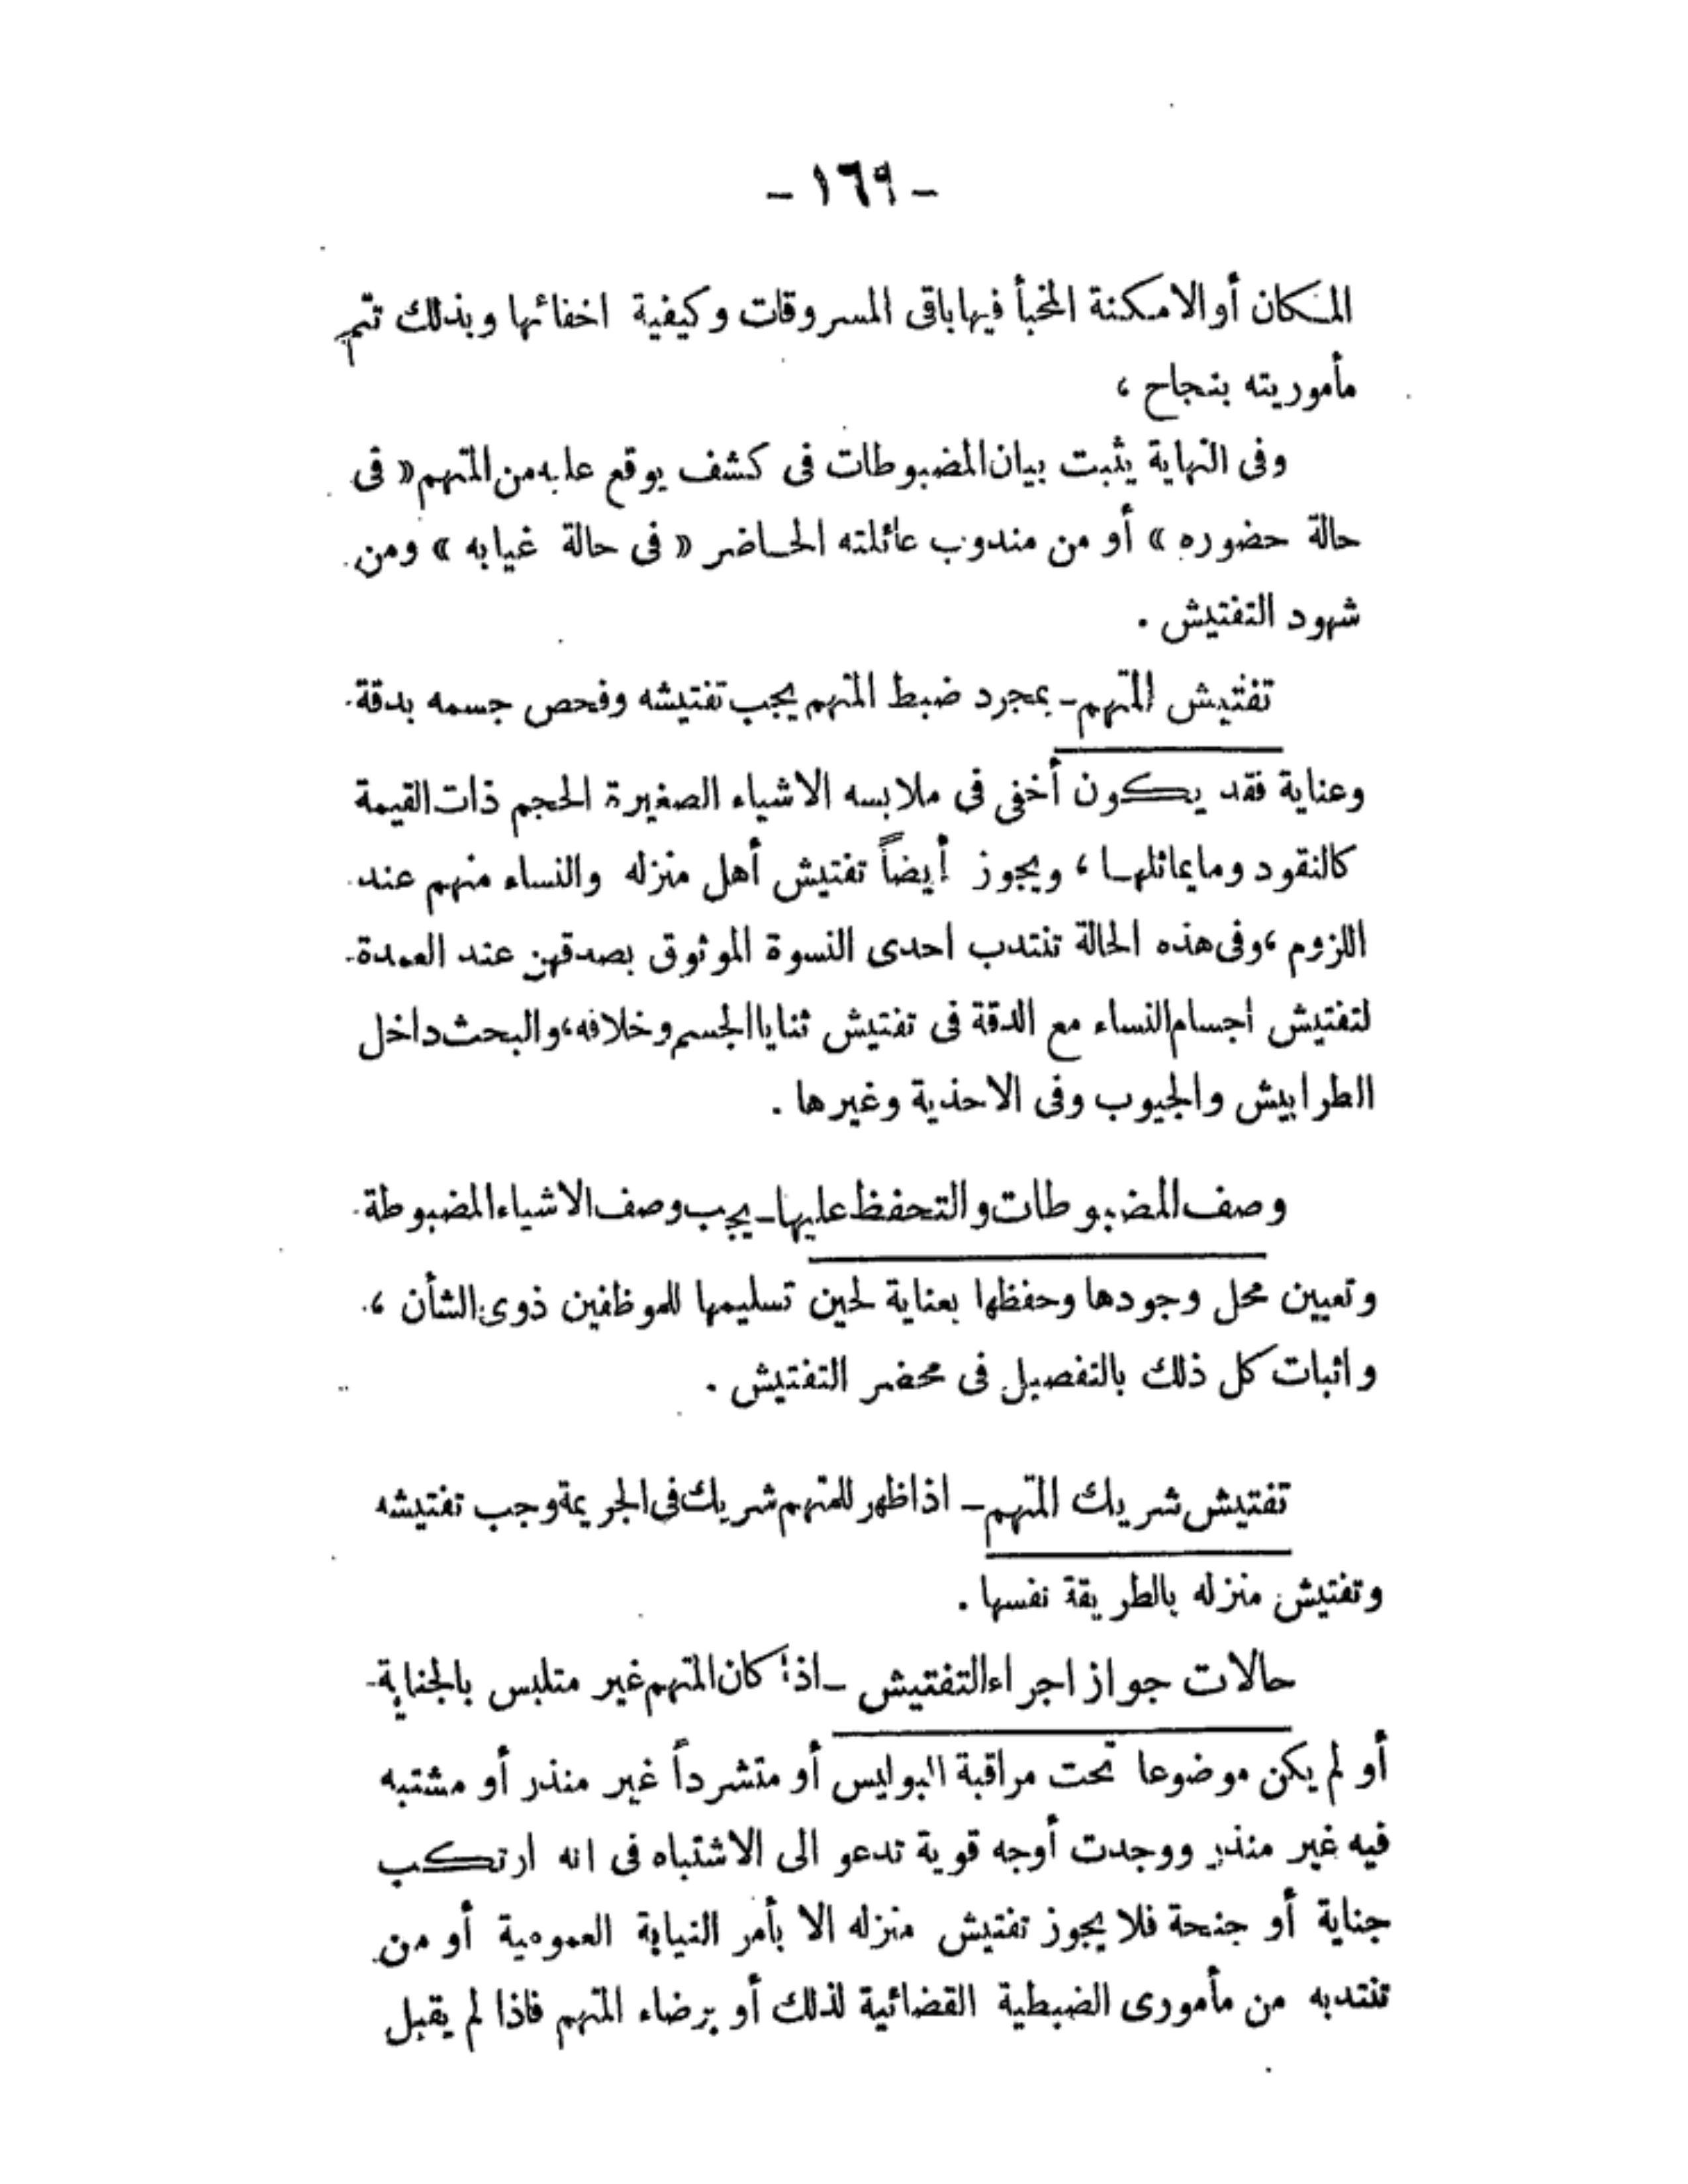 - ١٦٩ -
المكان أو الامكنة المخبأ فيها باقى المسروقات وكيفية اخفائها وبذلك تتم
مأموريته بنجاح ،
وفى النهاية يثبت بيان المضبوطات فى كشف يوقع عليه من المتهم « فى
حالة حضوره » أو من مندوب عائلته الحاضر « فى حالة غيابه » ومن
شهود التفتيش .
تفتيش المتهم - بمجرد ضبط المتهم يجب تفتيشه وفحص جسمه بدقة
وعناية فقد يكون أخفى فى ملابسه الاشياء الصغيرة الحجم ذات القيمة
كالنقود ومايماثلها ، ويجوز أيضاً تفتيش أهل منزله والنساء منهم عند
اللزوم ، وفى هذه الحالة تنتدب احدى النسوة الموثوق بصدقهن عند العمدة
لتفتيش اجسام النساء مع الدقة فى تفتيش ثنايا الجسم وخلافه ، والبحث داخل
الطرابيش والجيوب وفى الاحذية وغيرها .
وصف المضبوطات والتحفظ عليها - يجب وصف الاشياء المضبوطة
وتعيين محل وجودها وحفظها بعناية لحين تسليمها للموظفين ذوى الشأن ،
واثبات كل ذلك بالتفصيل فى محضر التفتيش .
تفتيش شريك المتهم - اذا ظهر للمتهم شريك فى الجريمة وجب تفتيشه
وتفتيش منزله بالطريقة نفسها .
حالات جواز اجراء التفتيش - اذا كان المتهم غير متلبس بالجناية
أو لم يكن موضوعا تحت مراقبة البوليس أو متشرداً غير منذر أو مشتبه
فيه غير منذر ووجدت أوجه قوية تدعو الى الاشتباه فى انه ارتكب
جناية أو جنحة فلا يجوز تفتيش منزله الا بأمر النيابة العمومية أو من
تنتدبه من مأمورى الضبطية القضائية لذلك أو برضاء المتهم فاذا لم يقبل